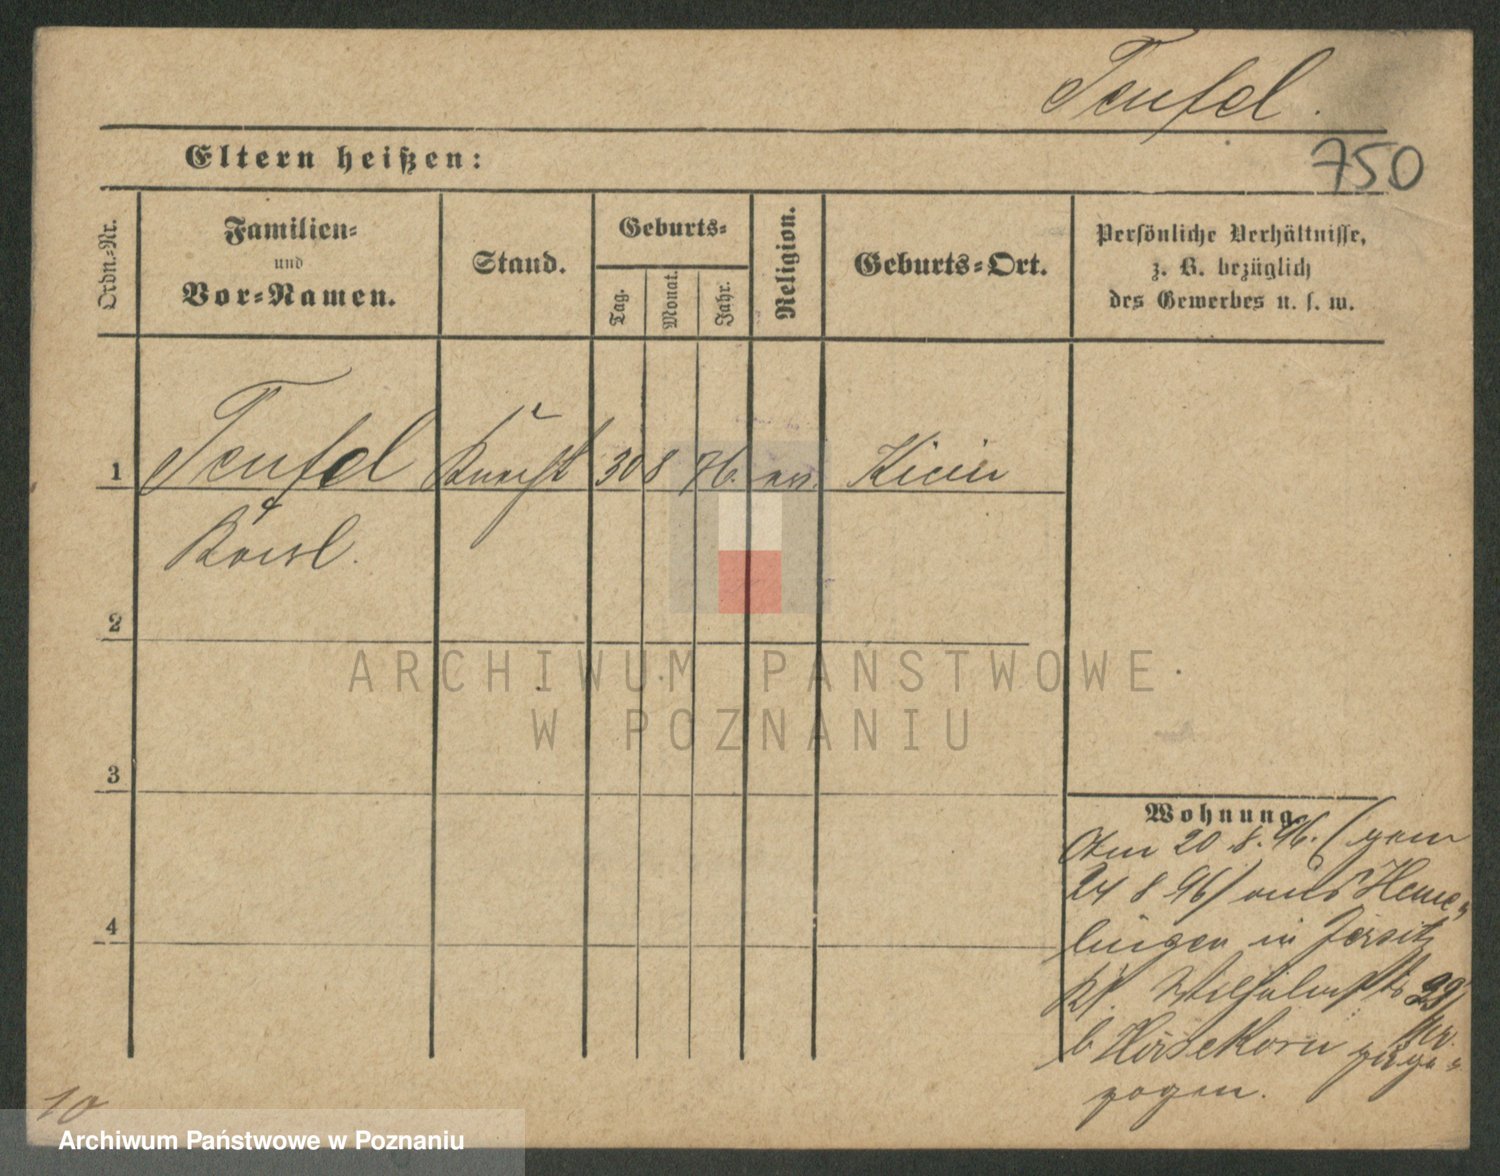 Teufel.
750
Eltern heißen:
Ordn.-Nr.
Familien-
und
Vor-Namen.
Stand.
Geburts-
Tag.
Monat.
Jahr.
Religion.
Geburts-Ort.
Persönliche Verhältnisse,
z. B. bezüglich
des Gewerbes u. s. w.
1 Teufel Knecht 30 8 76. ev. Kicin
Karl.
2
3
4
Wohnung.
Am 20 8. 96. (gem
24 8 96) aus Heme-
lingen in Jersitz
Kl. Wilhelmstr 29
b. Hirsekorn zuge-
zogen.
10
ARCHIWUM PAŃSTWOWE
W POZNANIU
Archiwum Państwowe w Poznaniu